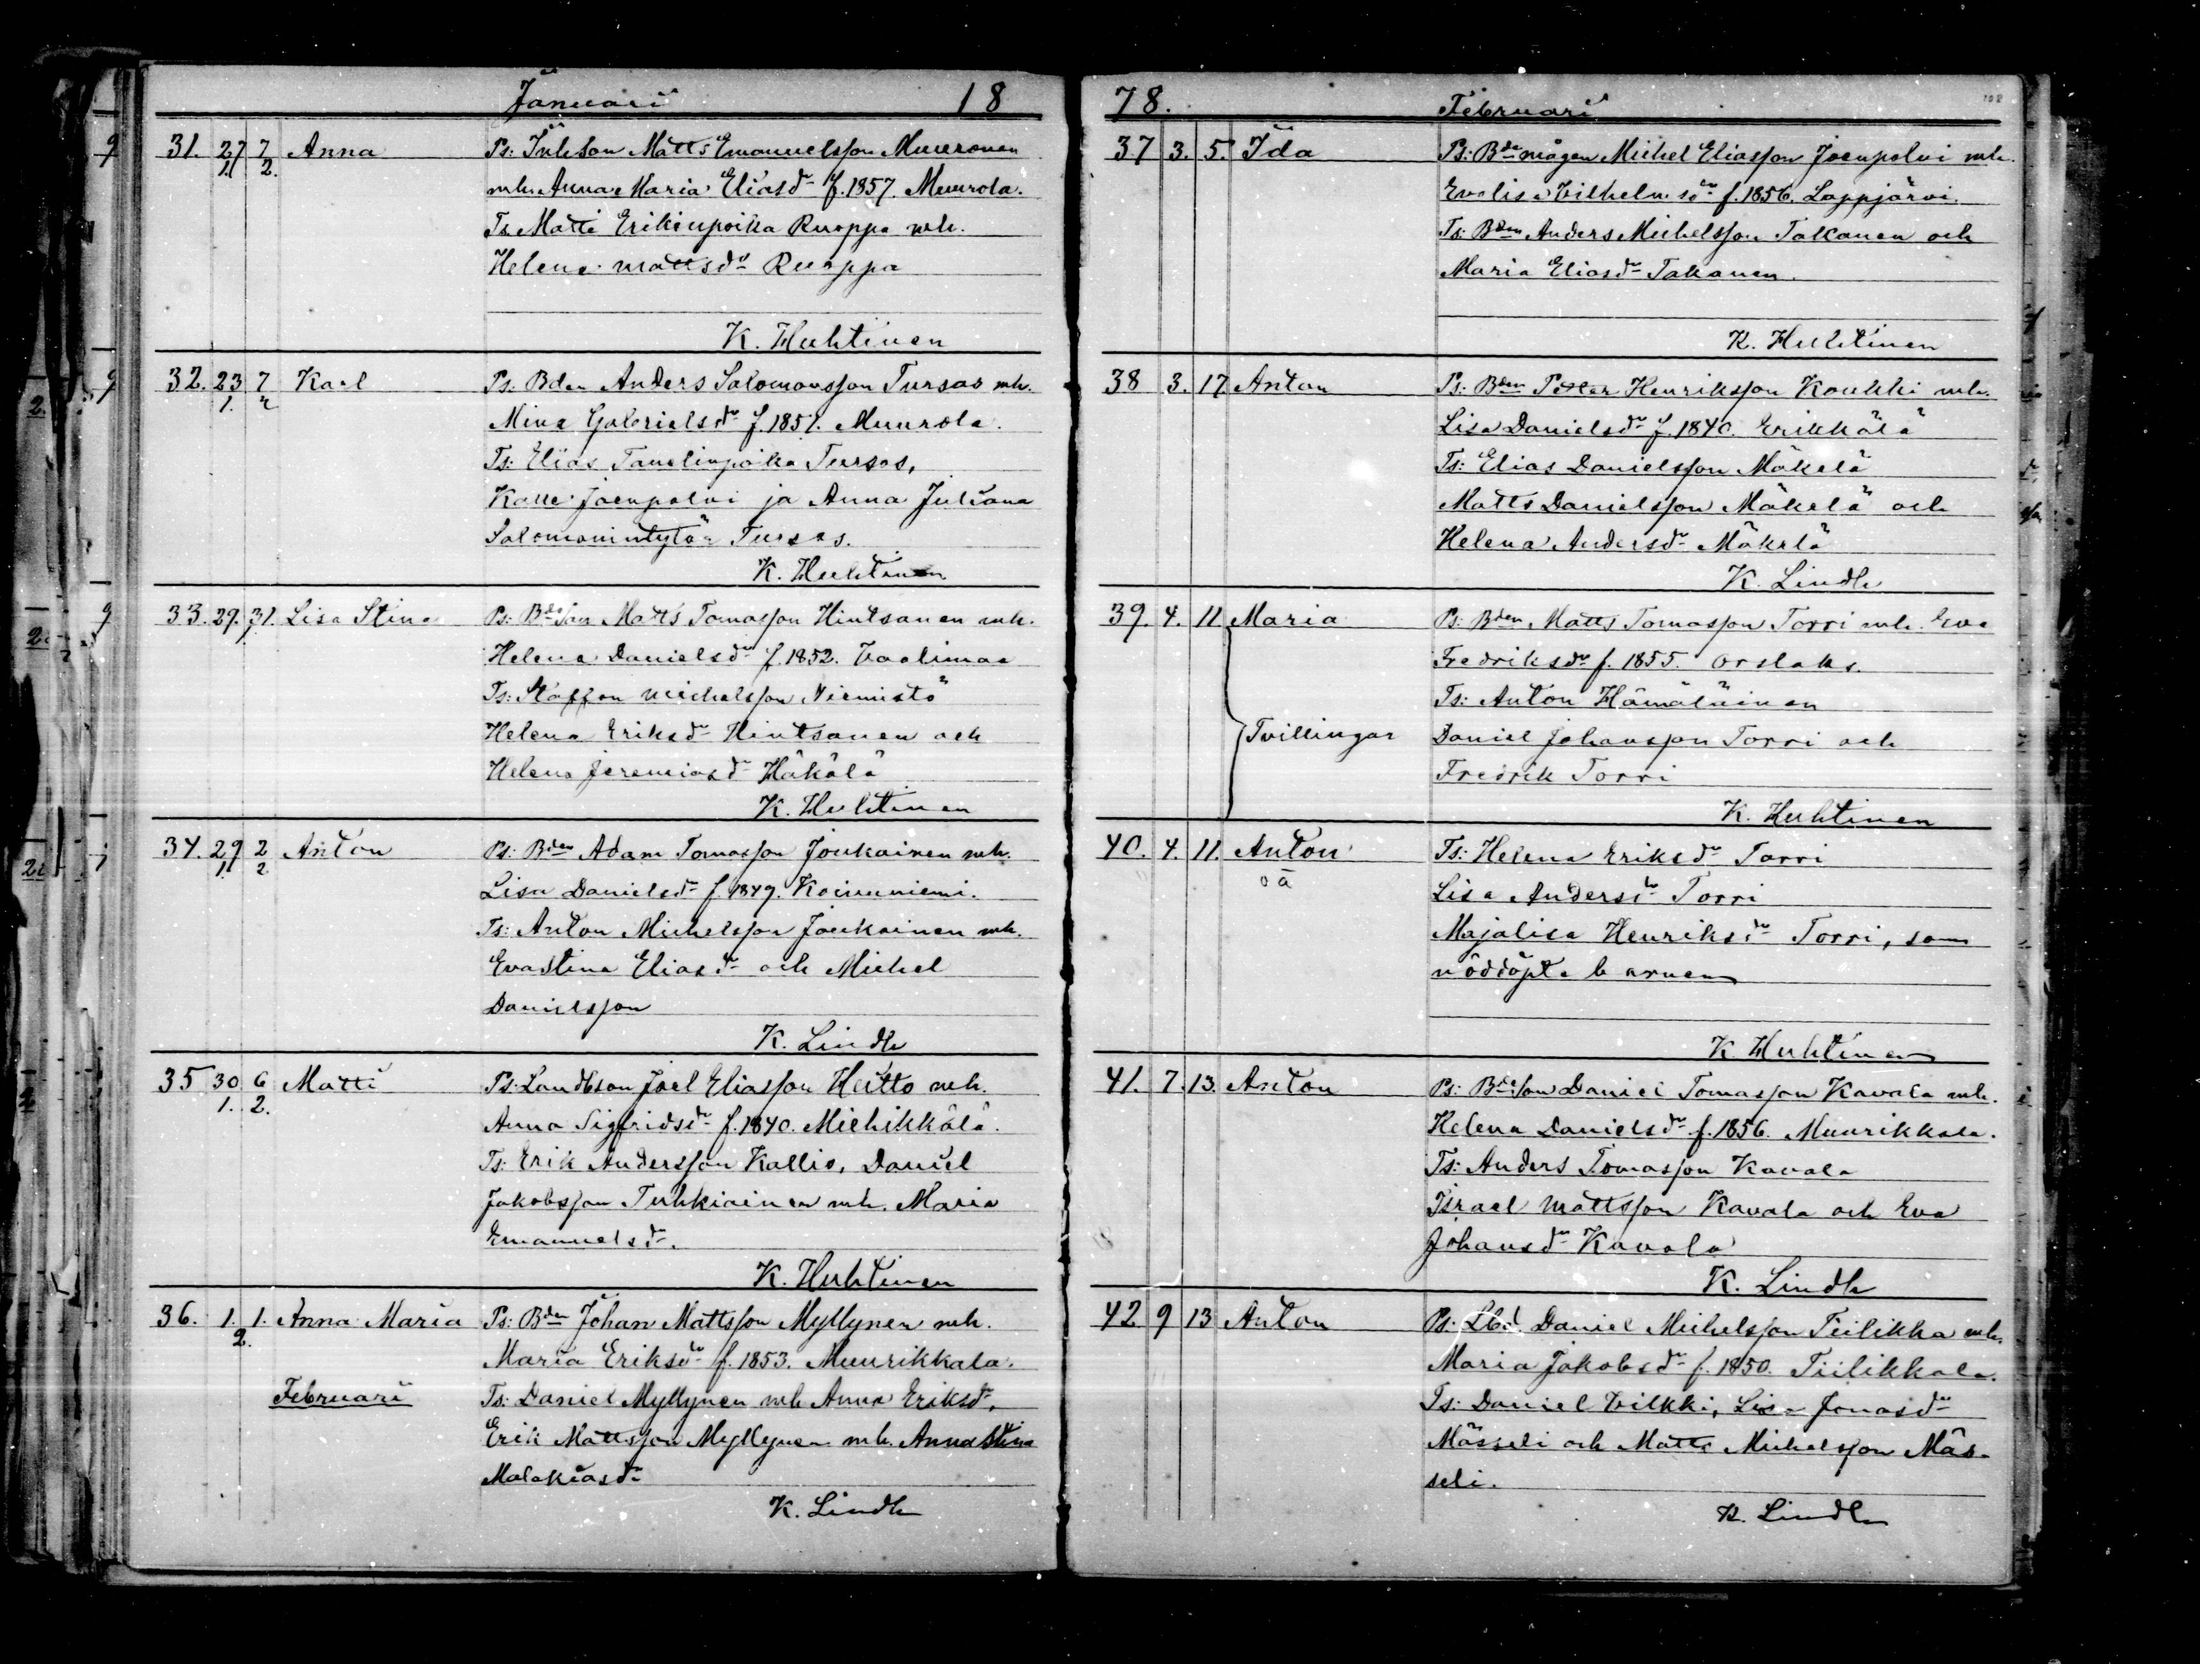 Januari 18
31. 27/1 7/2 Anna Ps: Inh.son Matts Emanuelsson Muuronen
mh. Anna Maria Eliasdr f. 1857. Muurola.
Ts. Matti Erikinpoika Ruoppa mh.
Helena Mattsdr Ruoppa
K. Huhtinen
32. 23/1. 7/2 Karl Ps. Bden Anders Salomonsson Tursas mh.
Mina Gabrielsdr f. 1851. Muurola.
Ts: Elias Tanelinpoika Tursas,
Kalle Joenpolvi ja Anna Juliana
Salomonintytär Tursas.
K. Huhtinen
33. 29. 31. Lisa Stina Ps: Bdeson Matts Tomasson Hintsanen mh.
Helena Danielsdr f. 1852. Vaalimaa
Ts: Staffan Michelsson Niemistö
Helena Eriksdr Hintsanen och
Helena Jeremiasdr Häkälä
K. Huhtinen
34. 29/1 2/2 Anton Ps: Bden Adam Tomasson Joukainen mh.
Lisa Danielsdr f. 1849. Koivuniemi.
Ts: Anton Michelsson Joukainen mh.
Evastina Eliasdr och Michel
Danielsson
K. Lindh
35 30/1. 6/2. Matti Ps: Landbson Joel Eliasson Heitto mh.
Anna Sigfridsdr f. 1840. Miehikkälä.
Ts: Erik Andersson Kallio, Daniel
Jakobsson Tuhkiainen mh. Maria
Emanuelsdr.
K. Huhtinen
36. 1./2. 1. Anna Maria Ps: Bden Johan Mattsson Myllynen mh.
Maria Eriksdr f. 1853. Muurikkala.
Februari Ts: Daniel Myllynen mh Anna Eriksdr,
Erik Mattsson Myllynen mh. Anna Stina
Malakiasdr
K. Lindh
78. Februari
37 3. 5. Ida Ps: Bdemågen Michel Eliasson Joenpolvi mh.
Evalisa Vilhelmsdr f. 1856. Lappjärvi.
Ts: Bden Anders Michelsson Talkanen och
Maria Eliasdr Takanen.
K. Huhtinen
38 3. 17. Anton Ps: Bden Petter Henriksson Koukki mh.
Lisa Danielsdr f. 1840. Erikkälä
Ts: Elias Danielsson Mäkelä
Matts Danielsson Mäkelä och
Helena Andersdr Mäkelä
K. Lindh
39. 4. 11 Maria Ps. Bden Matts Tomasson Torri mh. Eva
Fredriksdr f. 1855. Orslaks.
Ts: Anton Hämäläinen
Tvillingar Daniel Johansson Torri och
Fredrik Torri
K. Huhtinen
40. 4. 11. Anton Ts: Helena Eriksdr Torri
oä Lisa Andersdr Torri
Majalisa Henriksdr Torri, som
nöddöpte barnen
K. Huhtinen
41. 7. 13. Anton Ps: Bdeson Daniel Tomasson Kavala mh.
Helena Danielsdr f. 1856. Muurikkala.
Ts: Anders Tomasson Kavala
Israel Mattsson Kavala och Eva
Johansdr Kavala
K. Lindh
42 9 13 Anton Ps: Lbd. Daniel Michelsson Tiilikka mh.
Maria Jakobsdr f. 1850. Tiilikkala.
Ts: Daniel Vilkki, Lisa Jonasdr
Mässeli och Matts Michelsson Mäs-
seli.
K. Lindh